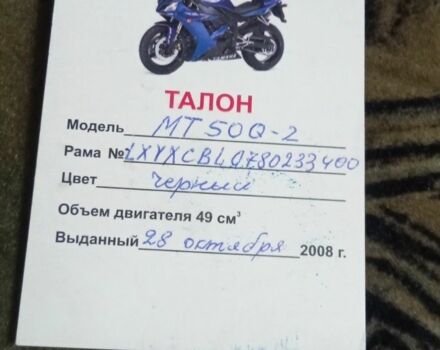 ТАЛОН
Модель МТ50Q-2
Рама № LXYXCBL0780233400
Цвет черный
Объем двигателя 49 см³
Выданный 28 октября 2008 г.